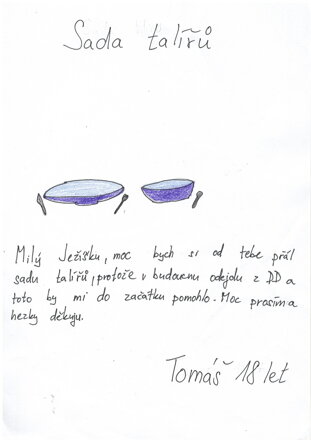 Sada talířů
Milý Ježíšku, moc bych si od tebe přál
sadu talířů, protože v budoucnu odejdu z DD a
toto by mi do začátku pomohlo. Moc prosím a
hezky děkuju.
Tomáš 18 let